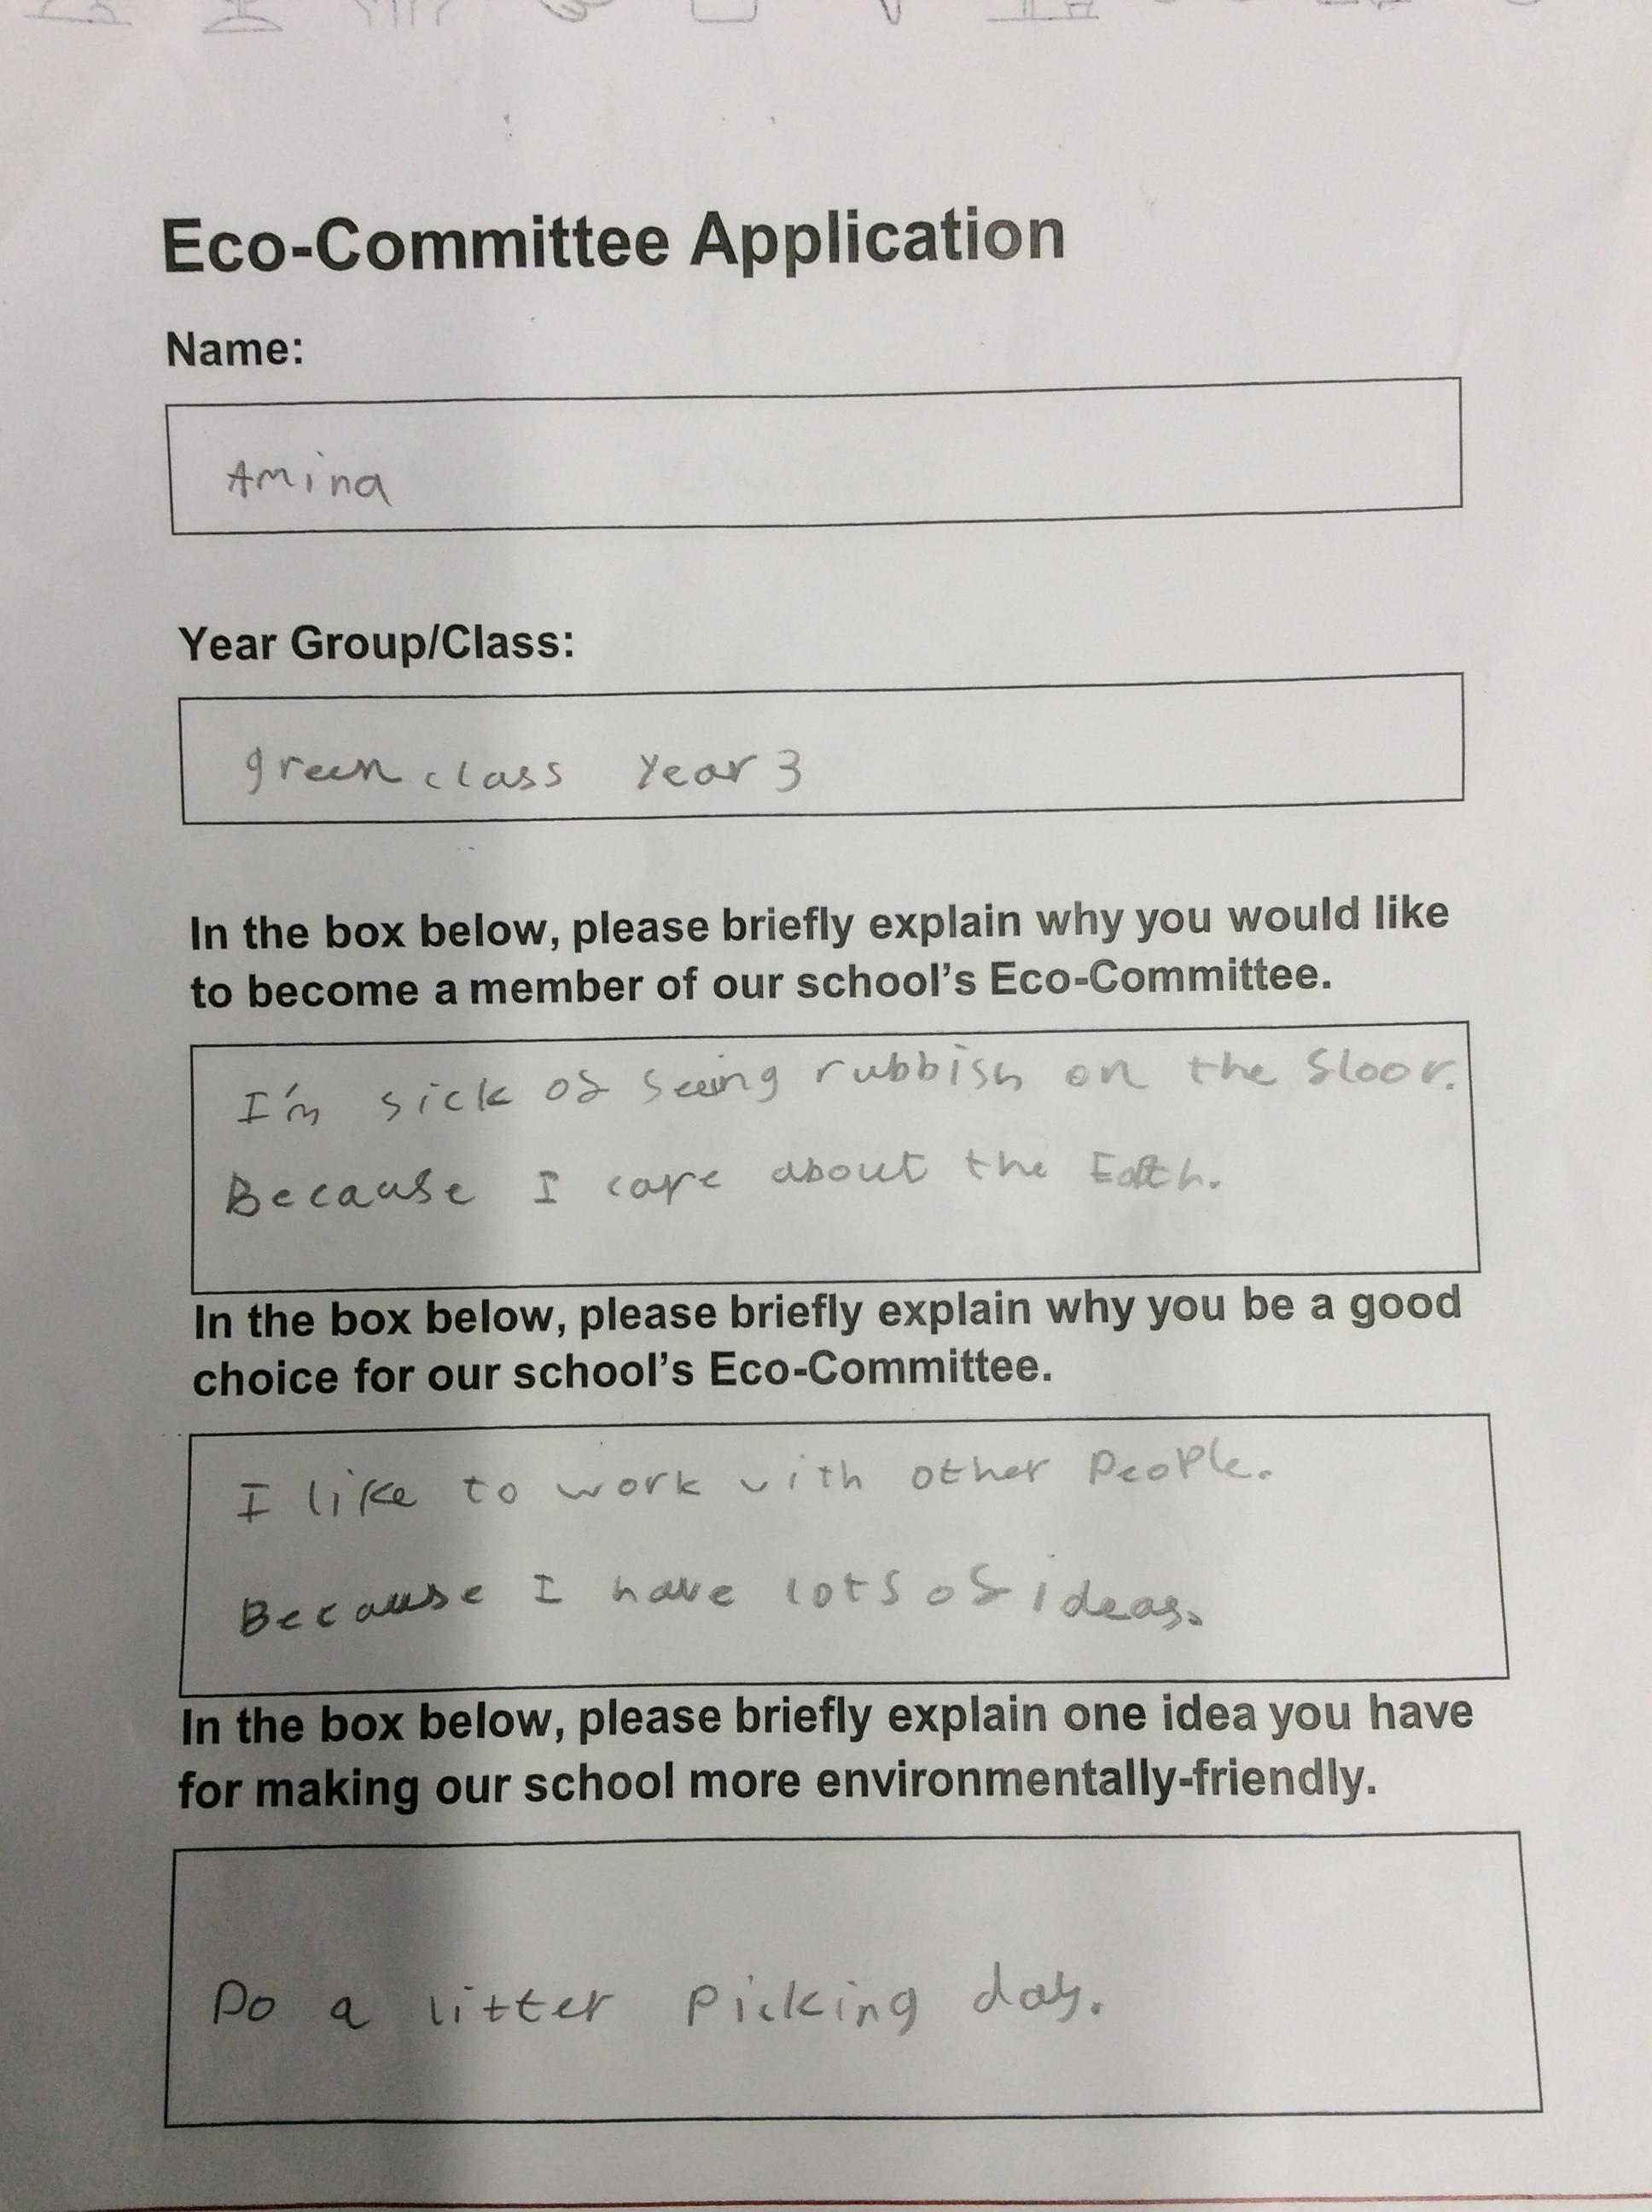 Eco-Committee Application
Name:
Amina
Year Group/Class:
green class Year 3
In the box below, please briefly explain why you would like
to become a member of our school's Eco-Committee.
I'm sick of seeing rubbish on the floor.
Because I care about the Earth.
In the box below, please briefly explain why you be a good
choice for our school's Eco-Committee.
I like to work with other People.
Because I have lots of ideas.
In the box below, please briefly explain one idea you have
for making our school more environmentally-friendly.
Do a litter Picking day.